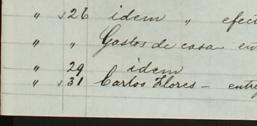 " " 26 idem " efec
" " Gastos de casa en
" " 29 idem
" " 31 Carlos Flores - entre